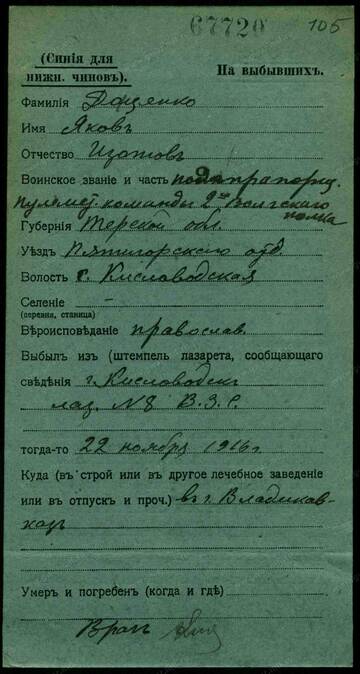 67720
105
(Синія для
нижн. чиновъ).
На выбывшихъ.
Фамилія Доценко
Имя Яковъ
Отчество
Воинское званіе и часть подпрапорщ.
пулемет. команды 2го Волгскаго
полка
Губернія Терской обл.
Уѣздъ Пятигорскаго отд.
Волость с. Кисловодская
Селеніе —
(деревня, станица)
Вѣроисповѣданіе православ.
Выбылъ из (штемпель лазарета, сообщающаго
свѣдѣнія г. Кисловодскъ
лаз. N8 В.З.С.
тогда-то 22 ноября 1916 г
Куда (въ строй или въ другое лечебное заведеніе
или въ отпускъ и проч.) въ г. Владикав-
казъ
Умеръ и погребенъ (когда и гдѣ)
Врачъ